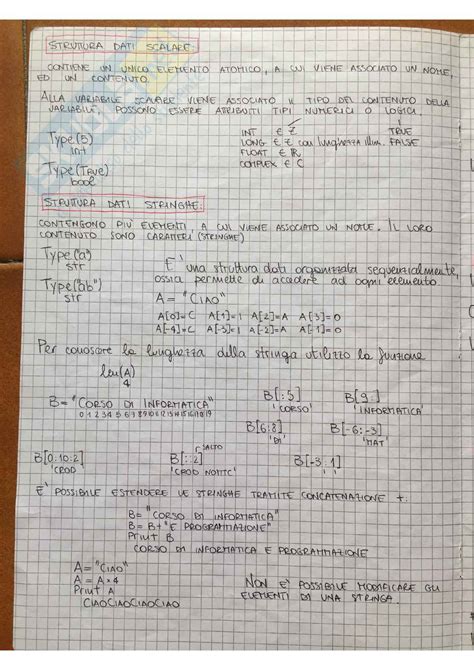 STRUTTURA DATI SCALARE:
CONTIENE UN UNICO ELEMENTO ATOMICO, A CUI VIENE ASSOCIATO UN NOME,
ED UN CONTENUTO.
ALLA VARIABILE SCALARE VIENE ASSOCIATO IL TIPO DEL CONTENUTO DELLA
VARIABILE, POSSONO ESSERE ATTRIBUITI TIPI NUMERICI O LOGICI
Type(5)
int
Type(True)
bool
INT ∈ Z
LONG ∈ Z con lunghezza illim.
FLOAT ∈ R
COMPLEX ∈ C
TRUE
FALSE
STRUTTURA DATI STRINGHE:
CONTENGONO PIU' ELEMENTI, A CUI VIENE ASSOCIATO UN NOME. IL LORO
CONTENUTO SONO CARATTERI (STRINGHE)
Type("a")
str
Type("ab")
str
E' una struttura dati organizzata sequenzialmente,
ossia permette di accedere ad ogni elemento
A = "CIAO"
A[0]=C A[1]=I A[2]=A A[3]=O
A[-4]=C A[-3]=I A[-2]=A A[-1]=O
Per conoscere la lunghezza della stringa utilizzo la funzione
len(A)
4
B="CORSO DI INFORMATICA"
0 1 2 3 4 5 6 7 8 9 10 11 12 13 14 15 16 17 18 19
B[:5]
'CORSO'
B[9:]
'INFORMATICA'
B[6:8]
'DI'
B[-6:-3]
'MAT'
B[0:10:2]
'CROD
SALTO
B[::2]
B[-3:1]
' '
E' POSSIBILE ESTENDERE LE STRINGHE TRAMITE CONCATENAZIONE +:
B= "CORSO DI INFORMATICA"
B= B+"E PROGRAMMAZIONE"
Print B
CORSO DI INFORMATICA E PROGRAMMAZIONE
A= "CIAO"
A = A*4
Print A
CIAOCIAOCIAOCIAO
NON E' POSSIBILE MODIFICARE GLI
ELEMENTI DI UNA STRINGA.